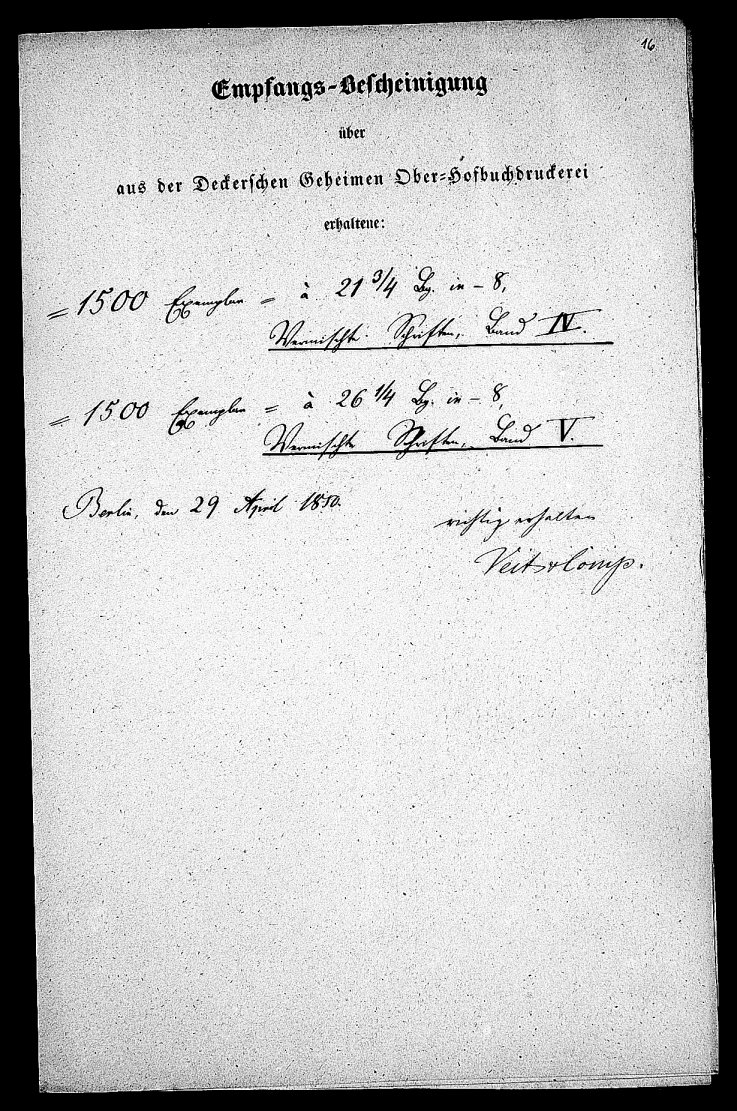 16
Empfangs-Bescheinigung
über
aus der Deckerschen Geheimen Ober-Hofbuchdruckerei
erhaltene:
= 1500 Exemplar = à 21 3/4 Bg. in - 8,
Vermischte Schriften, Band IV.
= 1500 Exemplar = à 26 1/4 Bg. in - 8,
Vermischte Schriften, Band V.
Berlin, den 29 April 1850.
richtig erhalten
Veit & Comp.